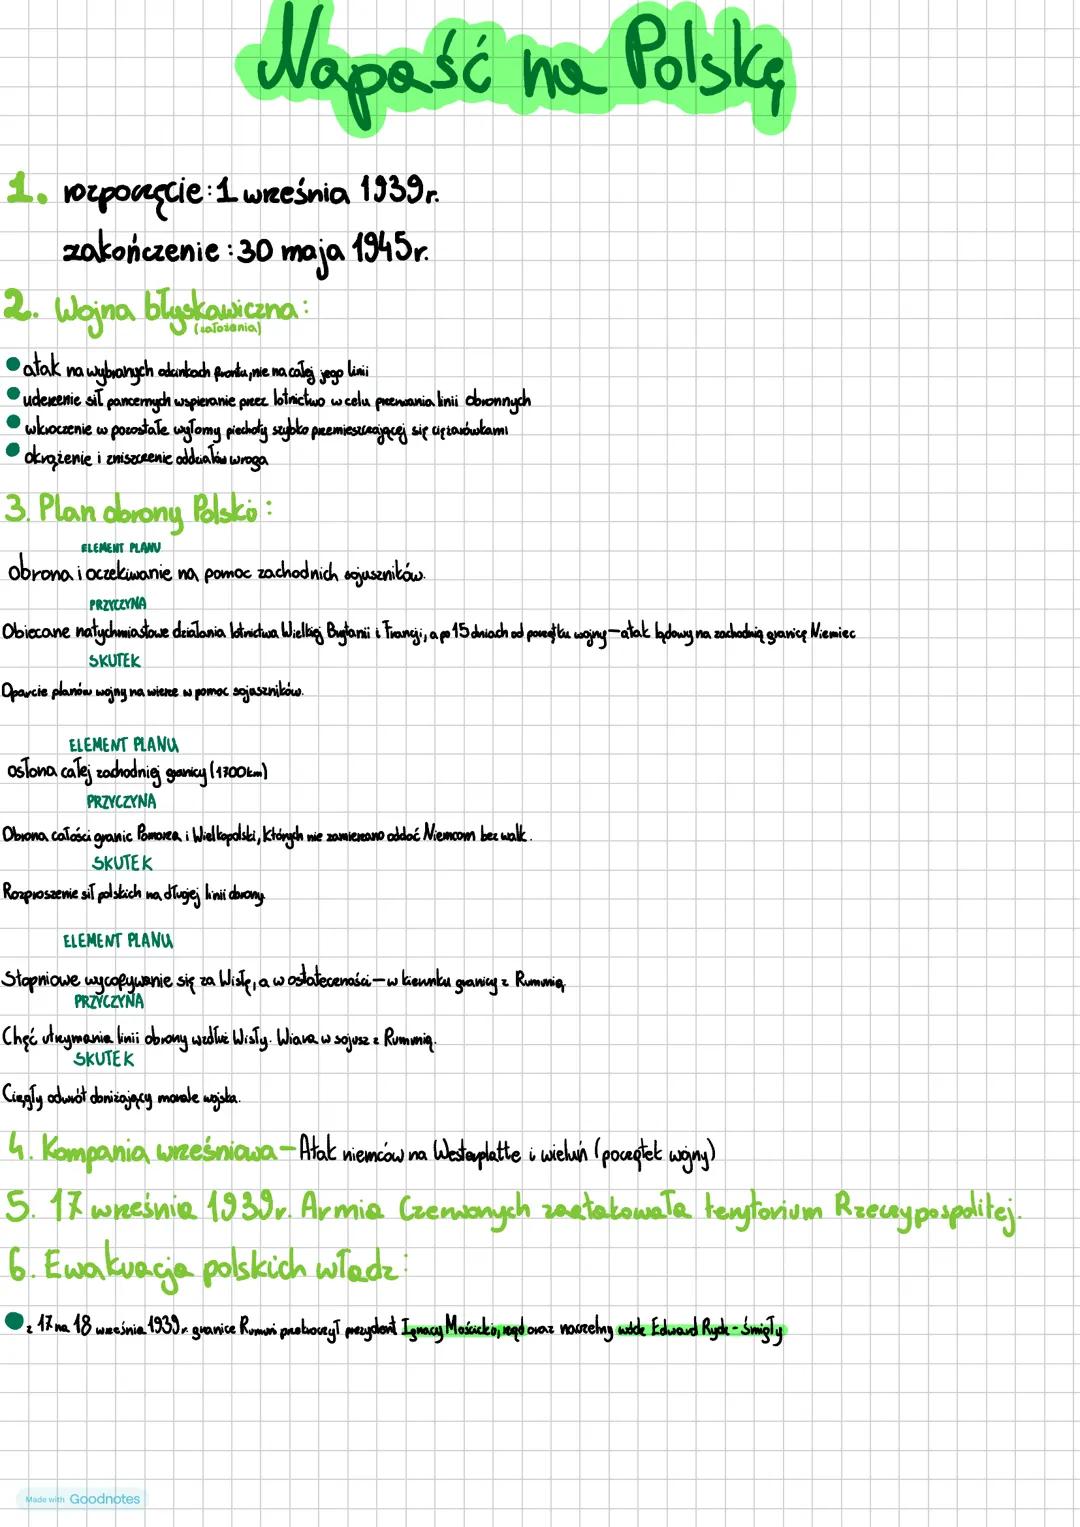 Napaść na Polskę
1. rozpoczęcie: 1 września 1939r.
zakończenie: 30 maja 1945r.
2. Wojna błyskawiczna:
(założenia)
atak na wybranych odcinkach frontu, nie na całej jego linii
uderzenie sił pancernych wspieranie przez lotnictwo w celu przerwania linii obronnych
wkroczenie w pozostałe wyłomy piechoty szybko przemieszczającej się ciężarówkami
okrążenie i zniszczenie oddziałów wroga
3. Plan obrony Polski:
ELEMENT PLANU
Obrona i oczekiwanie na pomoc zachodnich sojuszników.
PRZYCZYNA
Obiecane natychmiastowe działania lotnictwa Wielkiej Brytanii i Francji, a po 15 dniach od początku wojny—atak lądowy na zachodnią granicę Niemiec
SKUTEK
Oparcie planów wojny na wierze w pomoc sojuszników.
ELEMENT PLANU
osłona całej zachodniej granicy (1700km)
PRZYCZYNA
Obrona całości granic Pomorza i Wielkopolski, których nie zamierzano oddać Niemcom bez walk.
SKUTEK
Rozproszenie sił polskich na długiej linii obrony.
ELEMENT PLANU
Stopniowe wycofywanie się za Wisłę, a w ostateczności—w kierunku granicy z Rumunią.
PRZYCZYNA
Chęć utrzymania linii obrony wzdłuż Wisły. Wiara w sojusz z Rumunią.
SKUTEK
Ciągły odwrót obniżający morale wojska.
4. Kampania wrześniowa—Atak niemców na Westerplatte i wieluń (początek wojny)
5. 17 września 1939r. Armia Czerwonych zaatakowała terytorium Rzeczypospolitej.
6. Ewakuacja polskich władz:
z 17 na 18 września 1939r. granice Rumuni przekroczył prezydent Ignacy Mościcki, rząd oraz naczelny wódz Edward Rydz-Śmigły
Made with Goodnotes